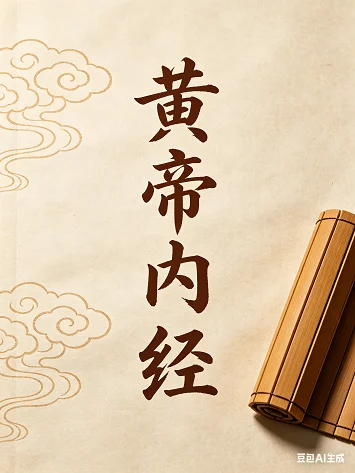 黄帝内经
豆包AI生成